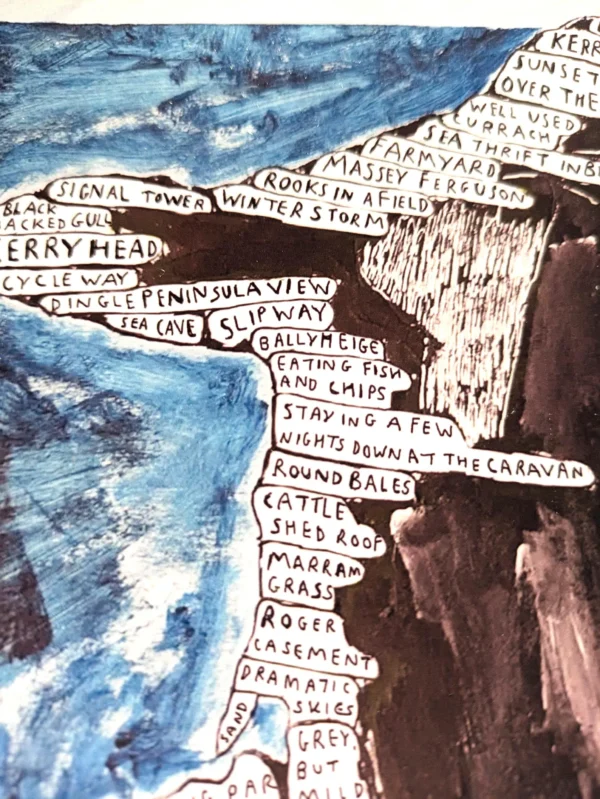 KERR
SUNSET
OVER THE
WELL USED
CURRACHS
SEA THRIFT IN B
FARMYARD
MASSEY FERGUSON
ROOKS IN A FIELD
WINTER STORM
SIGNAL TOWER
BLACK
BACKED GULL
KERRY HEAD
CYCLE WAY
DINGLE PENINSULA VIEW
SEA CAVE
SLIPWAY
BALLYHEIGE
EATING FISH
AND CHIPS
STAYING A FEW
NIGHTS DOWN AT THE CARAVAN
ROUND BALES
CATTLE
SHED ROOF
MARRAM
GRASS
ROGER
CASEMENT
DRAMATIC
SKIES
SAND
GREY,
BUT
MILD